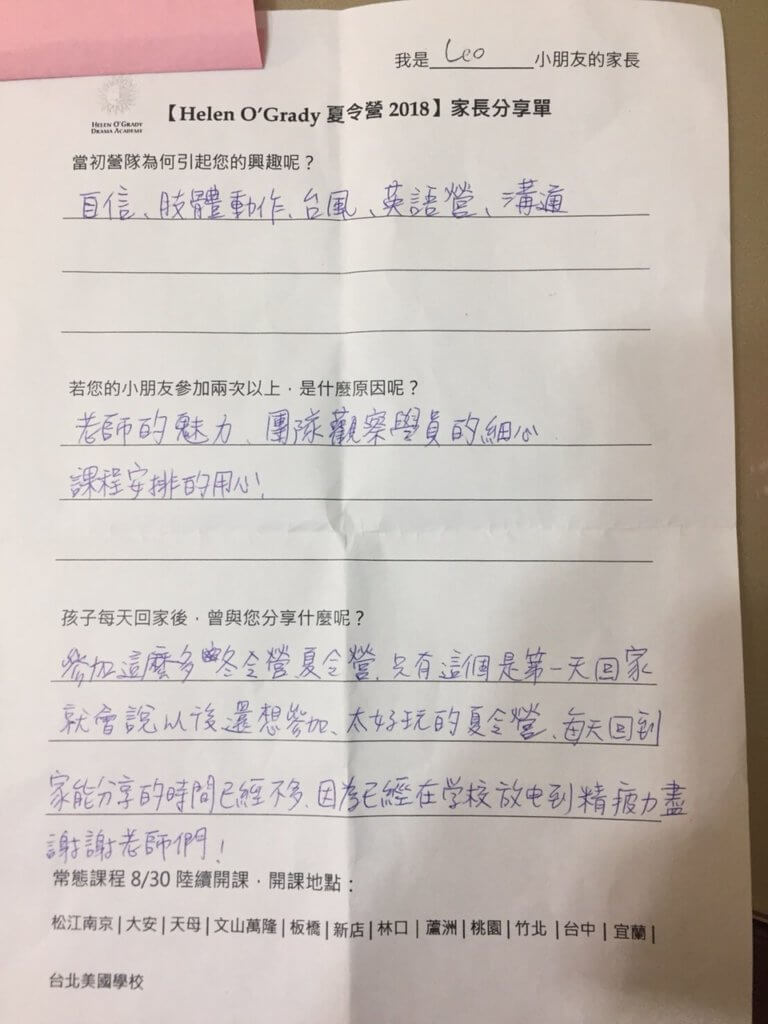 我是 Leo 小朋友的家長
HELEN O'GRADY
DRAMA ACADEMY
【Helen O'Grady 夏令營 2018】家長分享單
當初營隊為何引起您的興趣呢?
自信、肢體動作、台風、英語營、溝通
若您的小朋友參加兩次以上,是什麼原因呢?
老師的魅力、團隊觀察學員的細心
課程安排的用心!
孩子每天回家後,曾與您分享什麼呢?
參加這麼多冬令營、夏令營、只有這個是第一天回家
就會說以後還想參加、太好玩的夏令營、每天回到
家能分享的時間已經不多、因為已經在学校放电到精疲力盡
謝謝老師們!
常態課程 8/30 陸續開課,開課地點:
松江南京|大安|天母|文山萬隆|板橋|新店|林口|蘆洲|桃園|竹北|台中|宜蘭|
台北美國學校